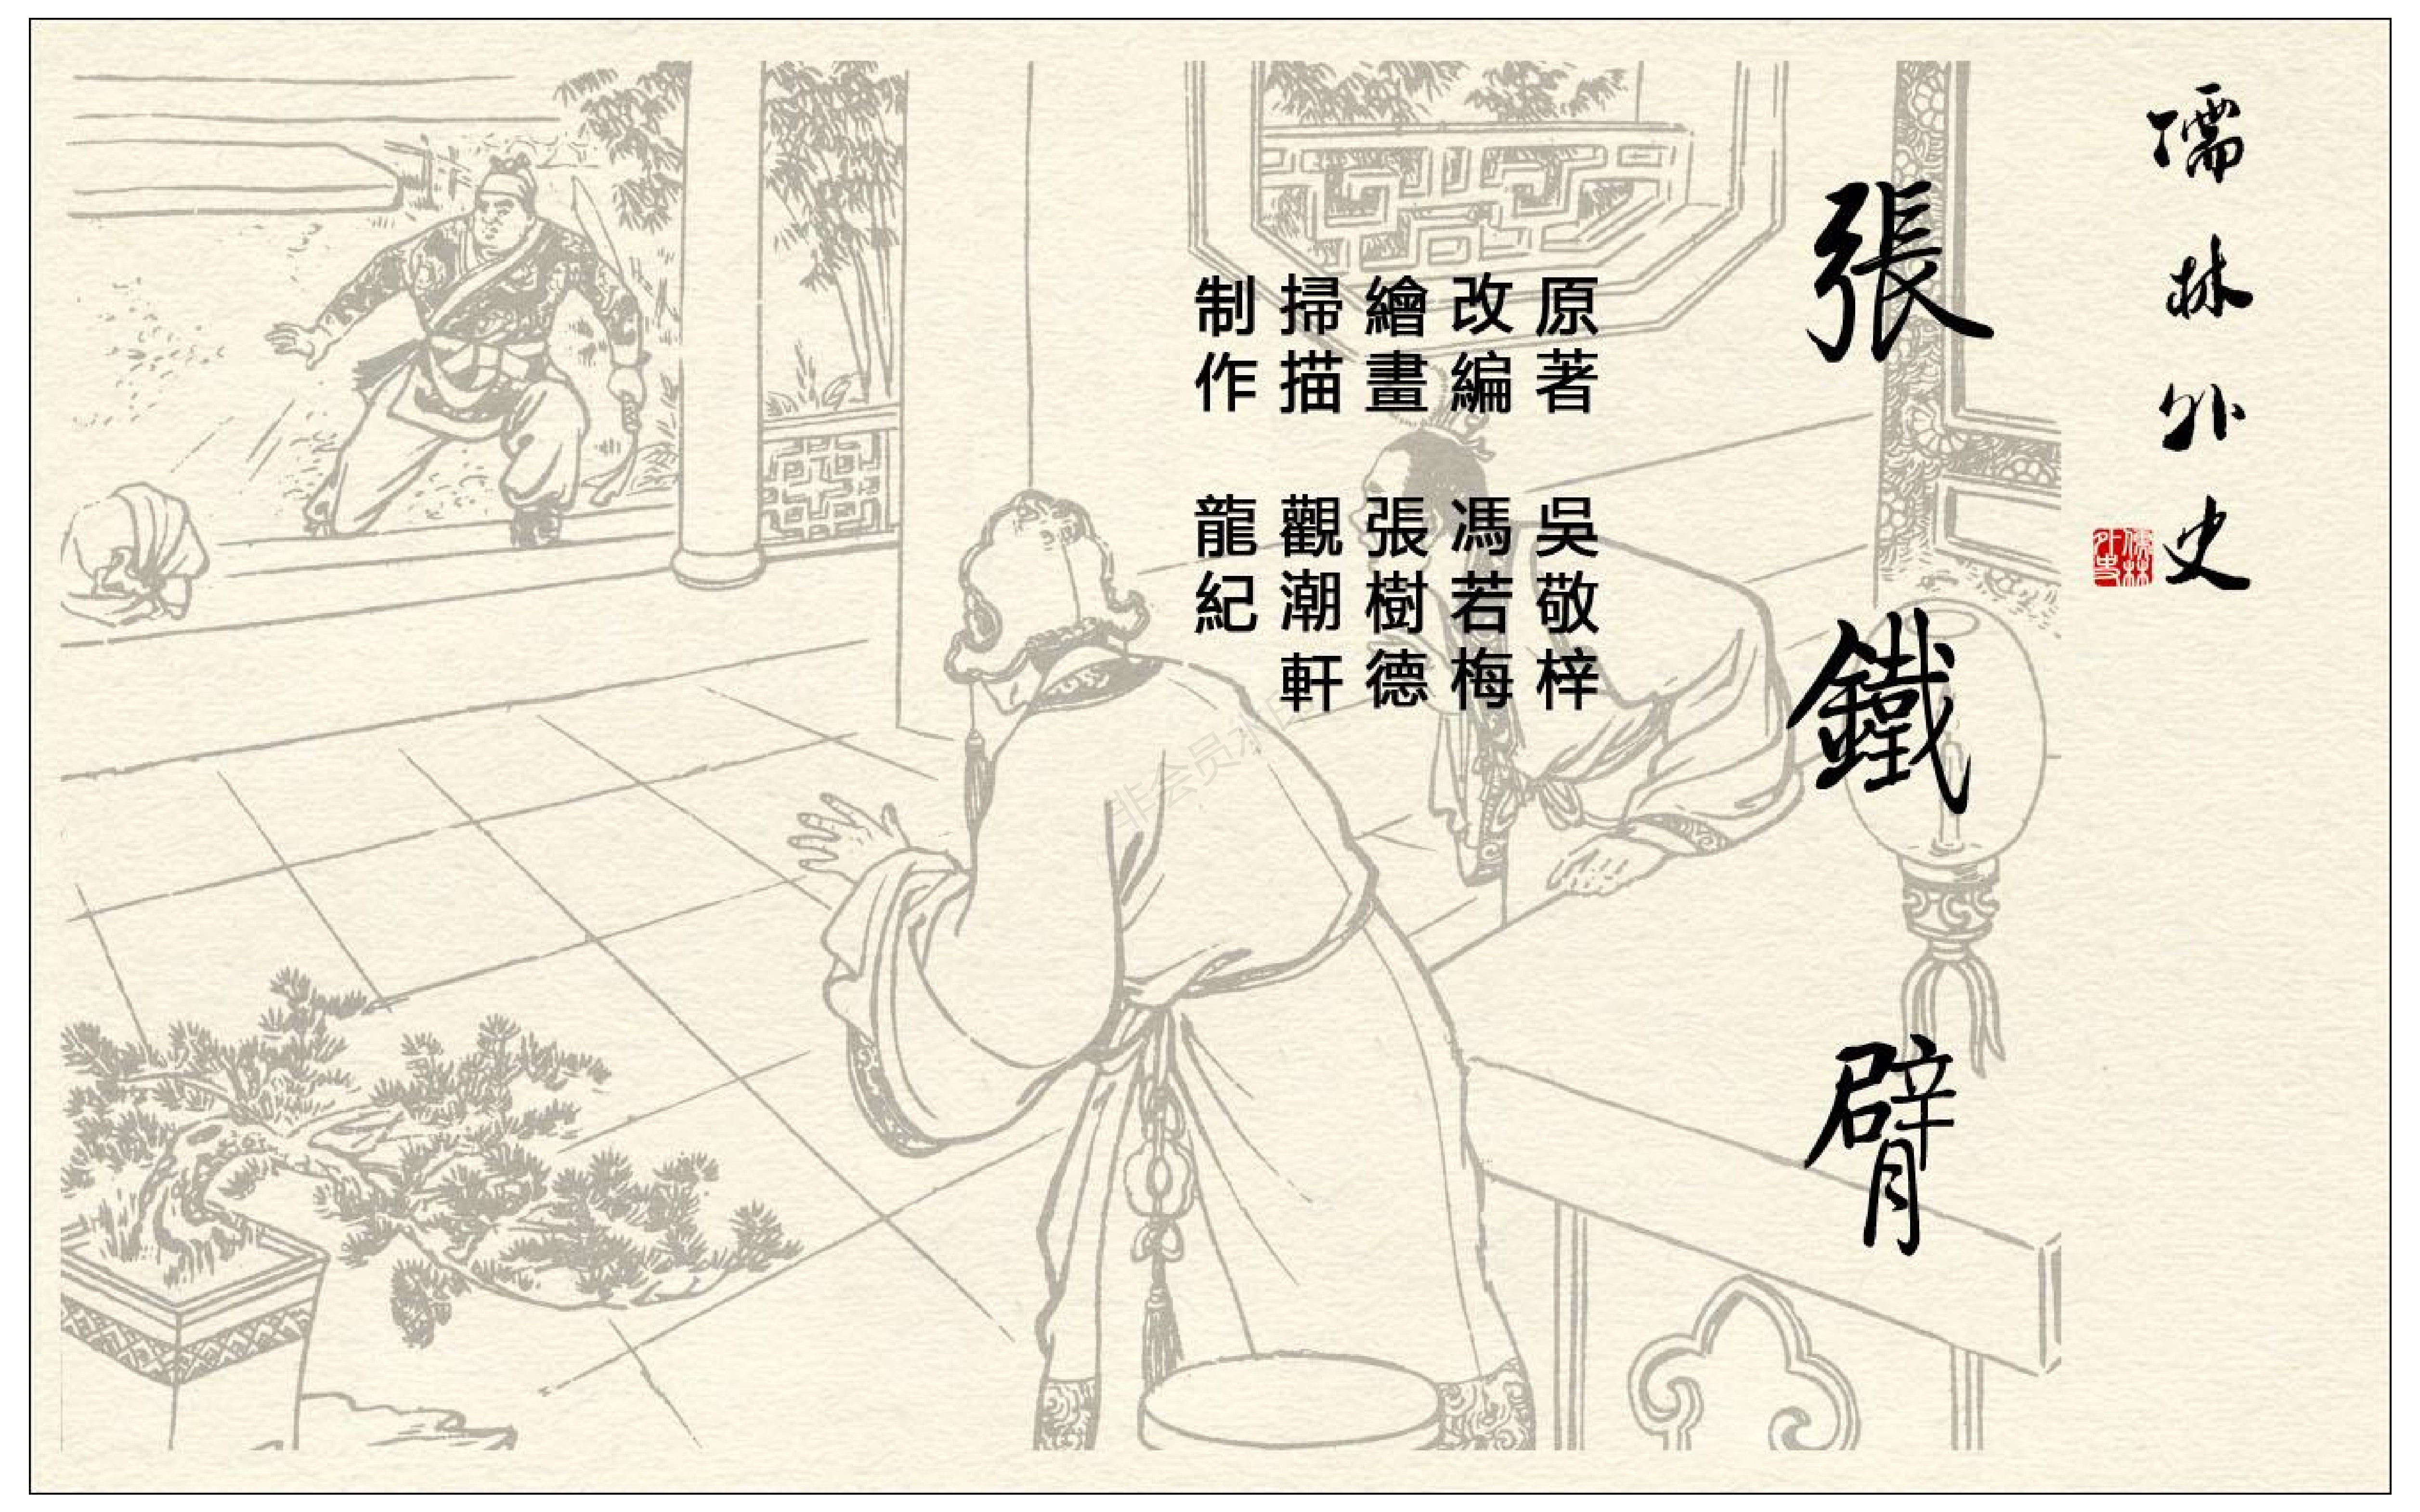 儒林外史
儒林外史
張鐵臂
原著 吳敬梓
改編 馮若梅
繪畫 張樹德
掃描 觀潮軒
制作 龍紀
非会员水